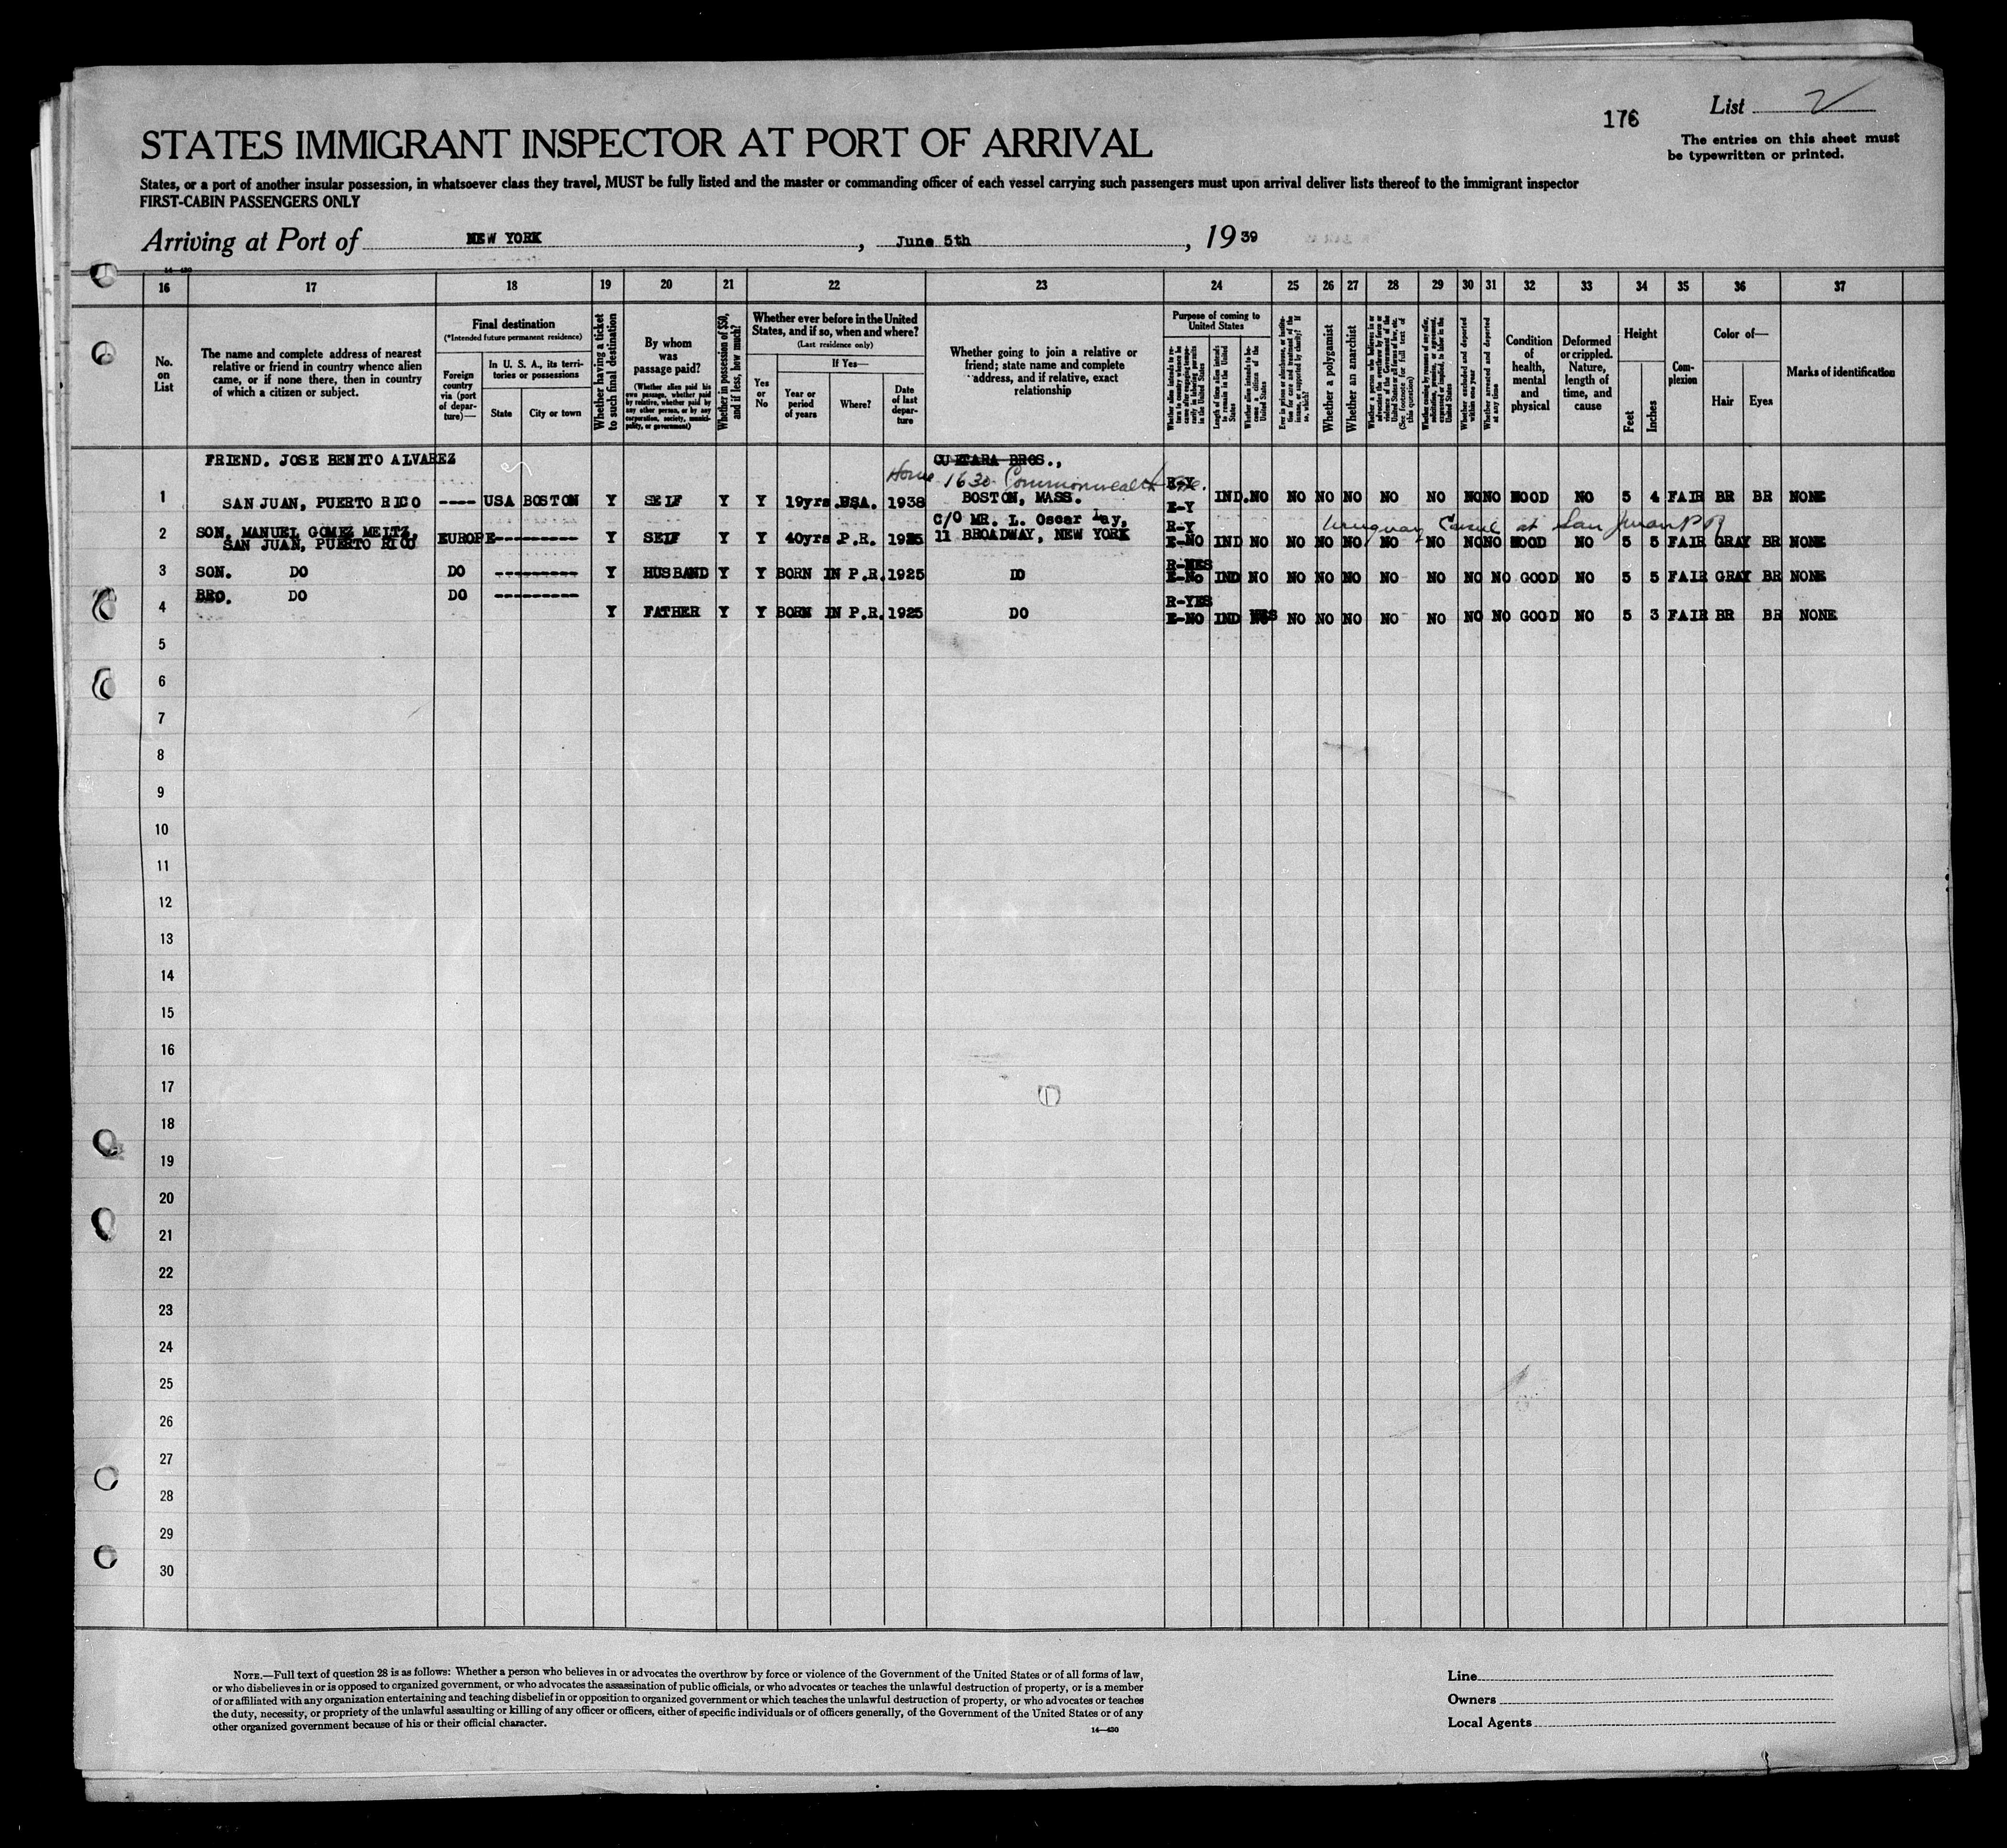 176
List 2
The entries on this sheet must
be typewritten or printed.
STATES IMMIGRANT INSPECTOR AT PORT OF ARRIVAL
States, or a port of another insular possession, in whatsoever class they travel, MUST be fully listed and the master or commanding officer of each vessel carrying such passengers must upon arrival deliver lists thereof to the immigrant inspector
FIRST-CABIN PASSENGERS ONLY
Arriving at Port of NEW YORK, June 5th, 1939
14-430
16 17 18 19 20 21 22 23 24 25 26 27 28 29 30 31 32 33 34 35 36 37
No. on List
The name and complete address of nearest relative or friend in country whence alien came, or if none there, then in country of which a citizen or subject.
Final destination
(*Intended future permanent residence)
Foreign country via (port of departure)—
In U. S. A., its territories or possessions
State
City or town
Whether having a ticket to such final destination
By whom was passage paid?
(Whether alien paid his own passage, whether paid by relative, whether paid by any other person, or by any corporation, society, municipality, or government)
Whether in possession of $50, and if less, how much?
Whether ever before in the United States, and if so, when and where?
(Last residence only)
Yes or No
If Yes—
Year or period of years
Where?
Date of last departure
Whether going to join a relative or friend; state name and complete address, and if relative, exact relationship
Purpose of coming to United States
Length of time alien intends to remain in the United States
Whether alien intends to become a citizen of the United States
Whether a polygamist
Whether an anarchist
Whether excluded and deported within one year
Whether arrested and deported at any time
Condition of health, mental and physical
Deformed or crippled. Nature, length of time, and cause
Height
Feet
Inches
Complexion
Color of—
Hair
Eyes
Marks of identification
FRIEND. JOSE BENITO ALVAREZ GUETARA BROS.,
Home 1630 Commonwealth Ave. R-Y
1 SAN JUAN, PUERTO RICO ---- USA BOSTON Y SELF Y Y 19yrs. USA. 1938 BOSTON, MASS. E-Y IND. NO NO NO NO NO NO NO NO GOOD NO 5 4 FAIR BR BR NONE
C/O MR. L. Oscar Lay, R-Y Uruguay Consul at San Juan PR
2 SON, MANUEL GOMEZ MELTZ, 11 BROADWAY, NEW YORK
SAN JUAN, PUERTO RICO EUROPE --------- Y SELF Y Y 40yrs. P.R. 1925 E-NO IND NO NO NO NO NO NO NO NO GOOD NO 5 5 FAIR GRAY BR NONE
R-YES
3 SON. DO DO --------- Y HUSBAND Y Y BORN IN P.R. 1925 DO E-No IND NO NO NO NO NO NO NO NO GOOD NO 5 5 FAIR GRAY BR NONE
BRO. DO DO ---------
R-YES
4 Y FATHER Y Y BORN IN P.R. 1925 DO E-NO IND NO NO NO NO NO NO NO GOOD NO 5 3 FAIR BR BR NONE
5
6
7
8
9
10
11
12
13
14
15
16
17
18
19
20
21
22
23
24
25
26
27
28
29
30
NOTE.—Full text of question 28 is as follows: Whether a person who believes in or advocates the overthrow by force or violence of the Government of the United States or of all forms of law,
or who disbelieves in or is opposed to organized government, or who advocates the assassination of public officials, or who advocates or teaches the unlawful destruction of property, or is a member
of or affiliated with any organization entertaining and teaching disbelief in or opposition to organized government or which teaches the unlawful destruction of property, or who advocates or teaches
the duty, necessity, or propriety of the unlawful assaulting or killing of any officer or officers, either of specific individuals or of officers generally, of the Government of the United States or of any
other organized government because of his or their official character.
14—430
Line
Owners
Local Agents